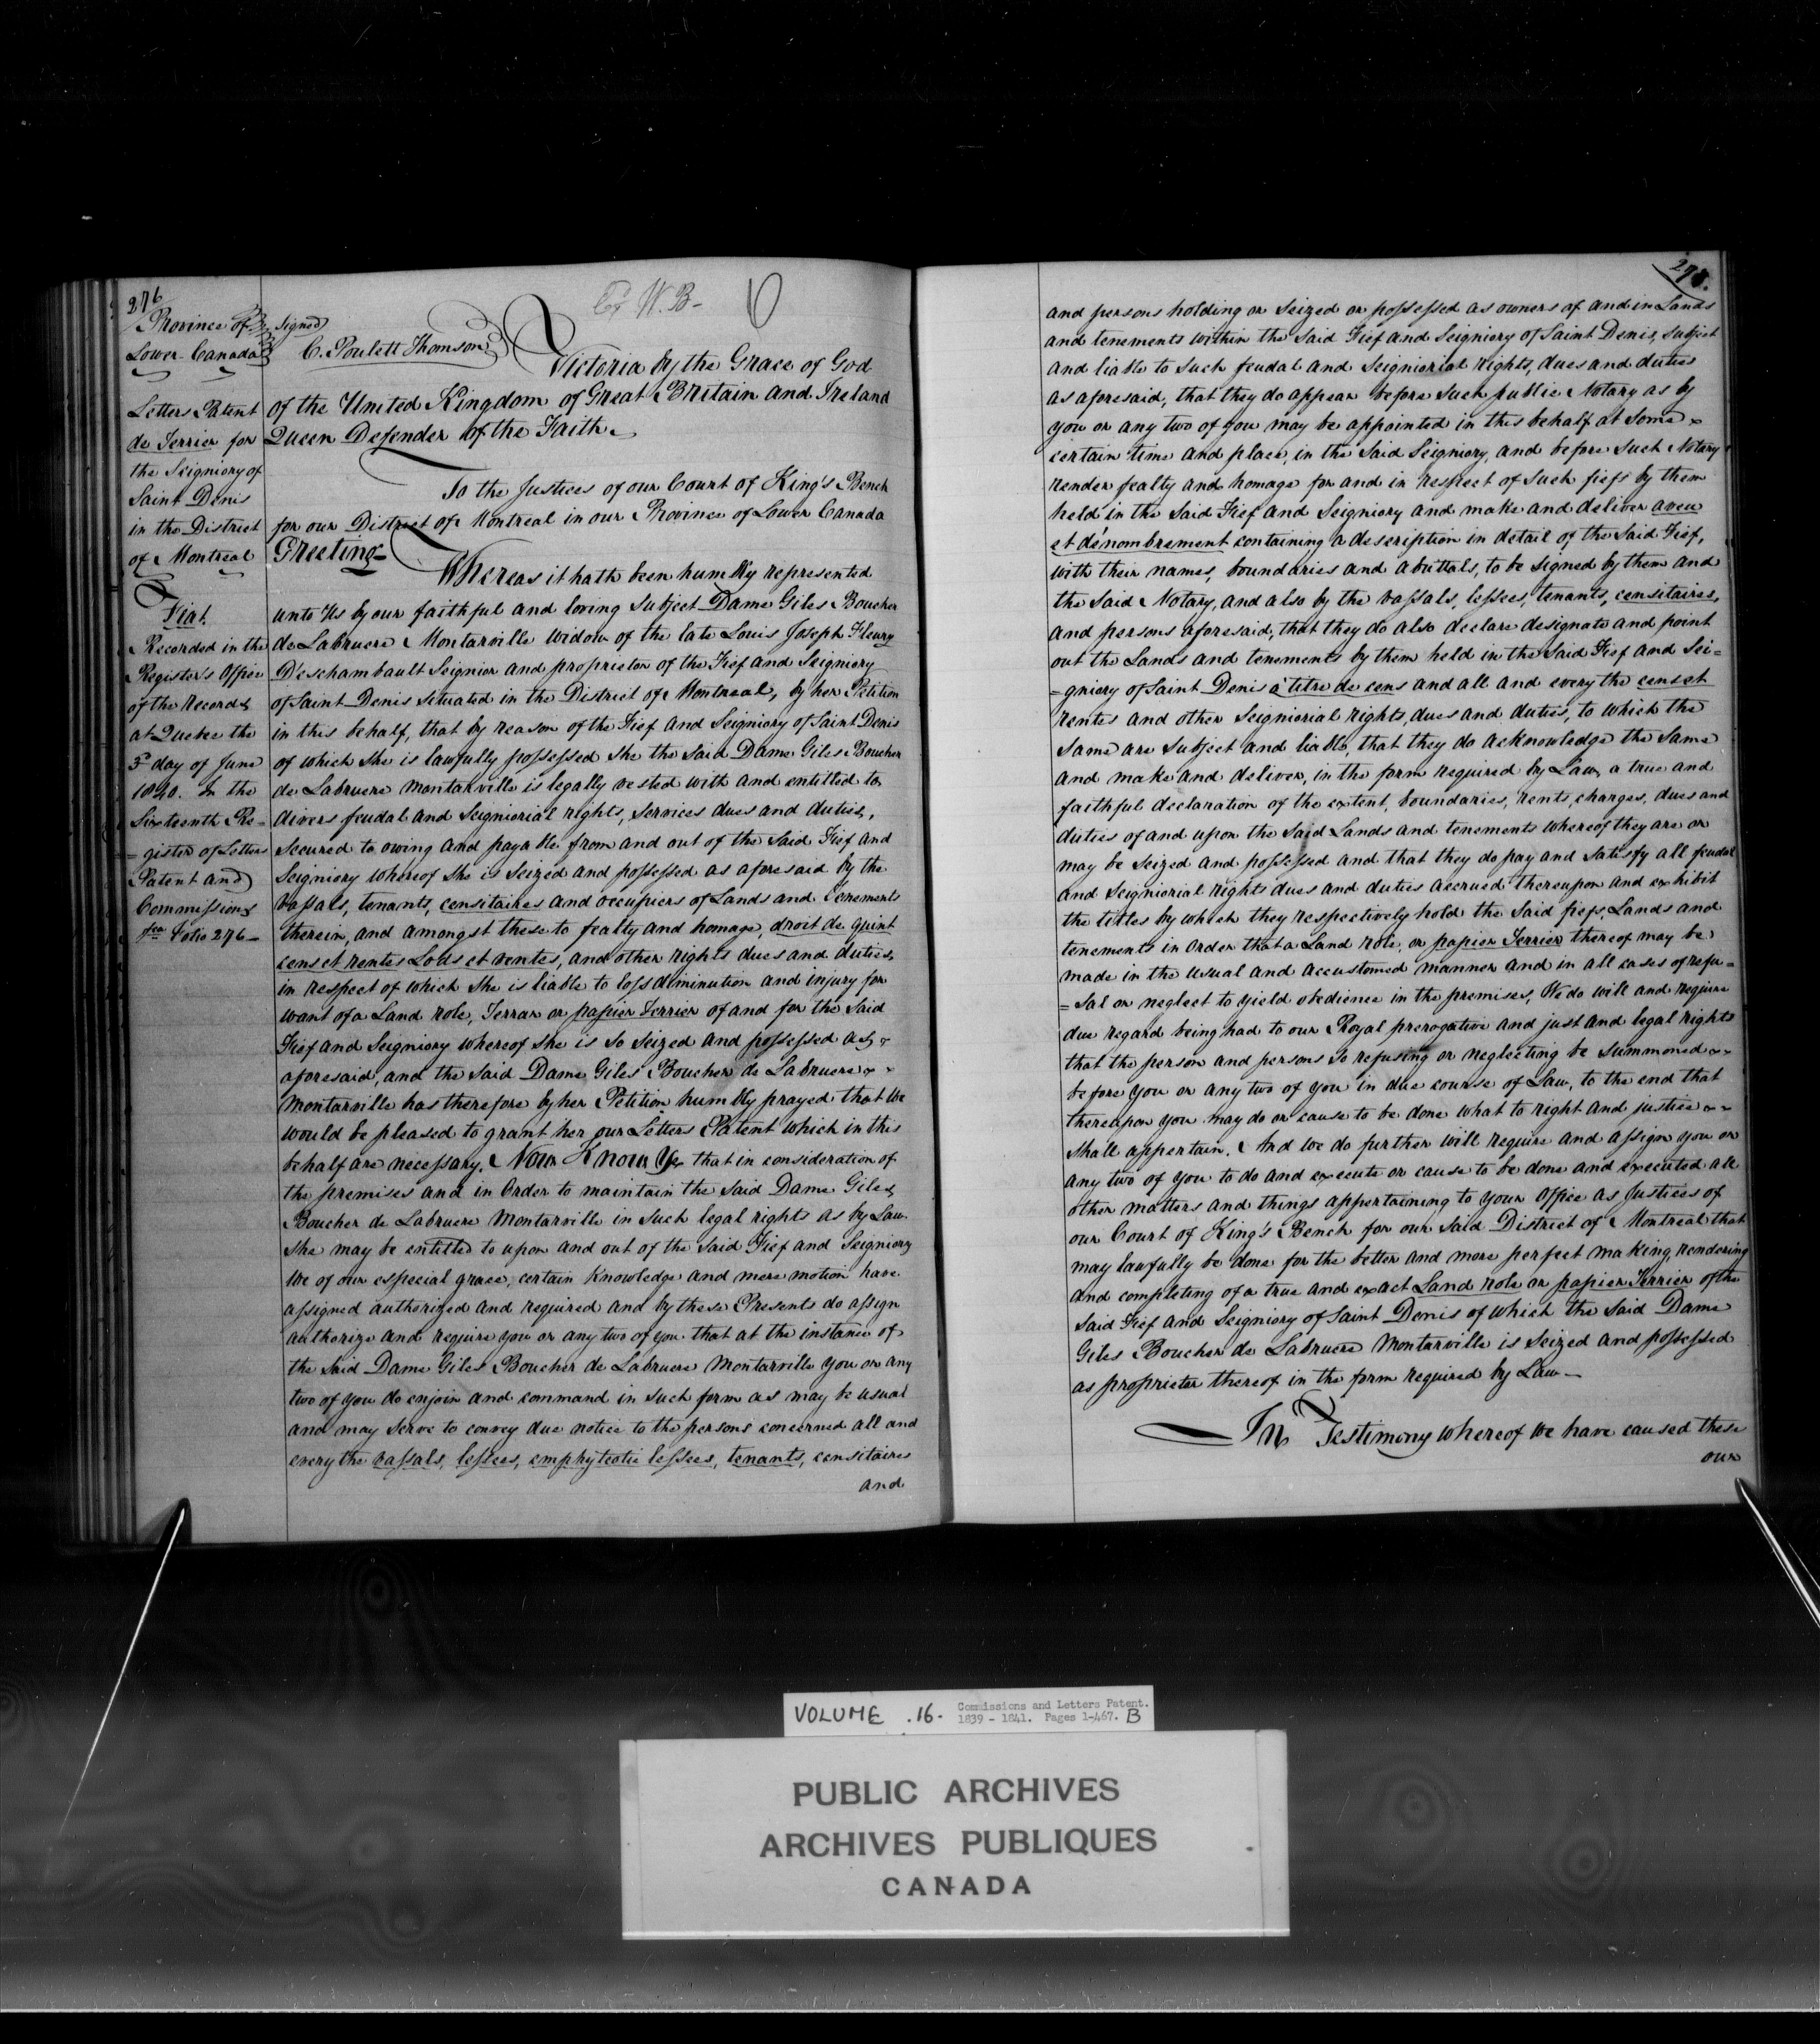 276
Ex W. B-
Province of
Lower Canada
Signed
C. Poulett Thomson
Letters Patent
de Terrier for
the Seigniory of
Saint Denis
in the District
of Montreal
Fiat
Recorded in the
Register's Office
of the Records
at Quebec the
3d day of June
1840. In the
Sixteenth Re=
=gister of Letters
Patent and
Commissions
Folio 276_
Victoria by the Grace of God
of the United Kingdom of Great Britain and Ireland
Queen Defender of the Faith.
To the Justices of our Court of King's Bench
for our District of Montreal in our Province of Lower Canada
Greeting
Whereas it hath been humbly represented
unto Us by our faithful and loving Subject Dame Giles Boucher
de Labruere Montarville widow of the late Louis Joseph Fleury
D'eschambault Seignior and proprietor of the Fief and Seigniory
of Saint Denis situated in the District of Montreal, by her Petition
in this behalf, that by reason of the Fief and Seigniory of Saint Denis
of which She is lawfully possessed She the Said Dame Giles Boucher
de Labruere Montarville is legally vested with and entitled to
divers feudal and Seigniorial rights, Services dues and duties,
Secured to owing and payable from and out of the Said Fief and
Seigniory whereof She is Seized and possessed as aforesaid by the
vassals, tenants, censitaires and occupiers of Lands and Tenements
therein, and amongst these to fealty and homage, droit de quint
cens et rentes Lods et ventes, and other rights dues and duties,
in respect of which She is liable to loss diminution and injury for
want of a Land role, Terrar or papier Terrier of and for the Said
Fief and Seigniory whereof She is So Seized and possessed as
aforesaid, and the Said Dame Giles Boucher de Labruere
Montarville has therefore by her Petition humbly prayed that We
would be pleased to grant her our Letters Patent which in this
behalf are necessary. Now Know Ye that in consideration of
the premises and in Order to maintain the Said Dame Giles
Boucher de Labruere Montarville in Such legal rights as by Law
She may be entitled to upon and out of the Said Fief and Seigniory
We of our especial grace, certain Knowledge and mere motion have
assigned authorized and required and by these Presents do assign
authorize and require you or any two of you that at the instance of
the Said Dame Giles Boucher de Labruere Montarville you or any
two of you do enjoin and command in such form as may be usual
and may Serve to convey due notice to the persons concerned all and
every the vassals, lessees, emphyteotic lessees, tenants, censitaires
and
278.
and persons holding or Seized or possessed as owners of and in Lands
and tenements within the Said Fief and Seigniory of Saint Denis, Subject
and liable to Such feudal and Seigniorial rights, dues and duties
as aforesaid, that they do appear before Such public Notary as by
you or any two of you may be appointed in this behalf at Some
certain time and place, in the Said Seigniory, and before Such Notary
render fealty and homage for and in respect of Such fiefs by them
held in the Said Fief and Seigniory and make and deliver aveu
et dénombrement containing a description in detail of the Said Fief,
with their names, boundaries and abuttals, to be Signed by them and
the Said Notary, and also by the vassals, lessees, tenants, censitaires,
and persons aforesaid, that they do also declare designate and point
out the Lands and tenements by them held in the Said Fief and Sei=
=gniory of Saint Denis à titre de cens and all and every the cens et
rentes and other Seigniorial rights, dues and duties, to which the
Same are Subject and liable, that they do acknowledge the Same
and make and deliver, in the form required by Law, a true and
faithful declaration of the extent, boundaries, rents, charges, dues and
duties of and upon the Said Lands and tenements whereof they are or
may be Seized and possessed and that they do pay and Satisfy all feudal
and Seigniorial rights dues and duties accrued thereupon and exhibit
the titles by which they respectively hold the Said fiefs, Lands and
tenements in Order that a Land role, or papier Terrier thereof may be
made in the usual and accustomed manner and in all cases of refu=
=sal or neglect to yield obedience in the premises, We do will and require
due regard being had to our Royal prerogative and just and legal rights
that the person and persons So refusing or neglecting be Summoned
before you or any two of you in due course of Law, to the end that
thereupon you may do or cause to be done what to right and justice
Shall appertain. And We do further will require and assign you or
any two of you to do and execute or cause to be done and executed all
other matters and things appertaining to your Office as Justices of
our Court of King's Bench for our Said District of Montreal that
may lawfully be done for the better and more perfect making, rendering
and completing of a true and exact Land role or papier Terrier of the
Said Fief and Seigniory of Saint Denis of which the Said Dame
Giles Boucher de Labruere Montarville is Seized and possessed
as proprietor thereof in the form required by Law_
In Testimony whereof We have caused these
our
VOLUME .16. Commissions and Letters Patent.
1839 - 1841. Pages 1-467. B
PUBLIC ARCHIVES
ARCHIVES PUBLIQUES
CANADA